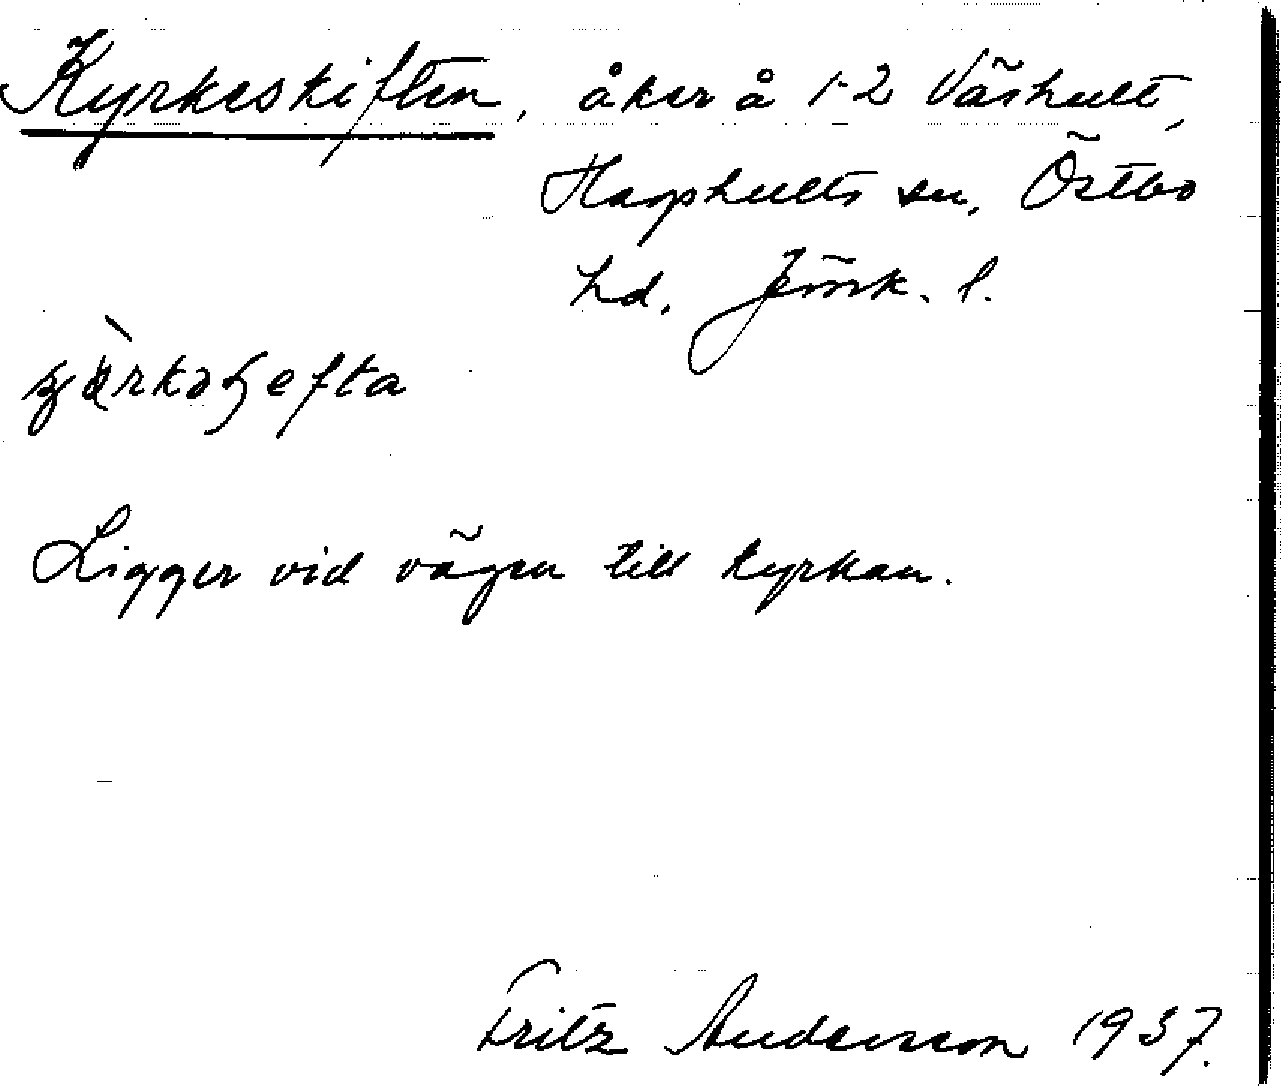 Kyrkeskiften, åker å 1-2 Väshult,
Hagshults sn, Östbo
hd. Jönk. l.
Ligger vid vägen till kyrkan.
Fritz Andersson 1937.